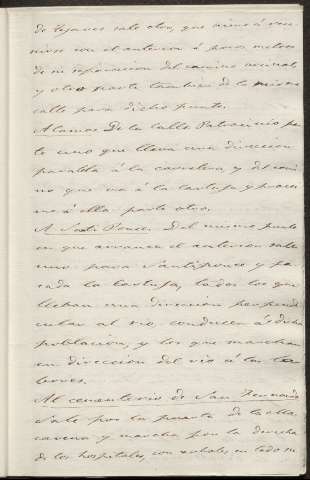 de Tejares sale otro, que viene á reu-
nirse con el anterior á pocos metros
de su separacion del camino vecinal
y otro parte tambien de la misma
calle para dicho punto.
Alamos De la calle Patrocinio par-
te uno que lleva una direccion
paralela á la carretera y del cami-
no que va á la Cartuja y proxi-
mo á ella parte otro.
A Santi Ponce. Del mismo punto
en que arranca el anterior sale
uno para Santiponce y pa-
sada la Cartuja, todos los que
llevan una direccion perpendi-
cular al rio, conducen á dicha
poblacion, y los que marchan
en direccion del rio á las la-
bores.
Al cementerio de San Fernando
Sale por la puerta de la Ma-
carena y marcha por la derecha
de los hospitales, con arboles en todo su